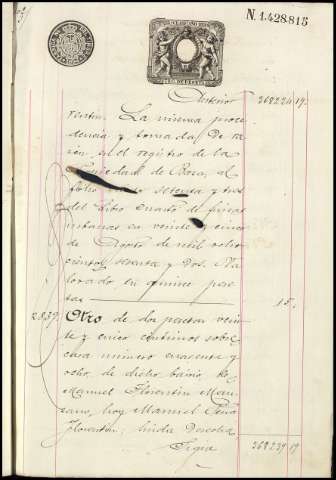 N. 1.428.815
Anterior 368224.19.
ventin. La misma proce
dencia y tomada De ra
zon en el registro de la
Propiedad de Baza, al
folio setenta y tres
del libro cuarto de fincas
urbanas en veinte y cinco
de Agosto de mil ocho
cientos setenta y dos. Va
lorado en quince pese
tas 15.
2859. Otro de dos pesetas vein
te y cinco centimos sobre
casa numero cuarenta y
ocho, de dicho barrio, de
Manuel Florentin Man
zano, hoy Manuel
Florentin; linda Derecha
Sigue 368239.19